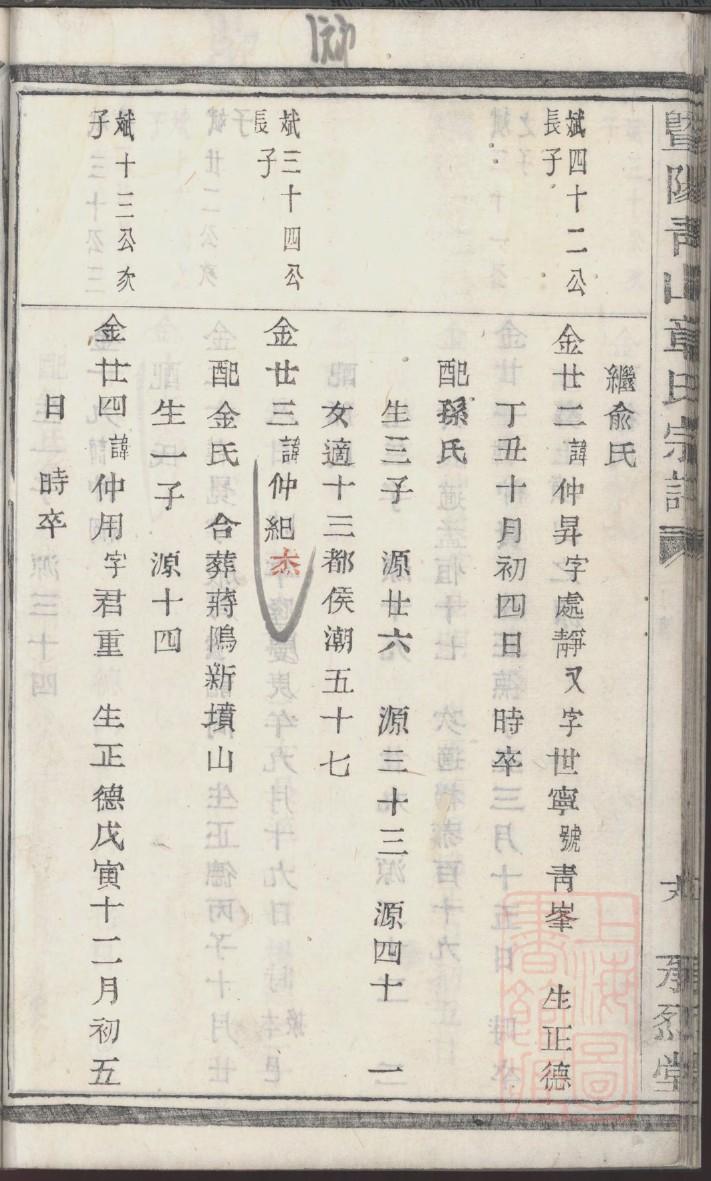 暨陽青山章氏宗譜
承烈堂
繼俞氏
斌四十二公
長子
金廿二諱仲昇字處靜又字世寧號青峯 生正德
丁丑十月初四日 時卒
配孫氏
生三子 源廿六 源三十三 源四十 一
女適十三都侯潮五十七
斌三十四公
長子
金廿三諱仲紀杰
配金氏 合葬蔣鴡新墳山
生一子 源十四
斌十三公次
子
金廿四諱仲用字君重 生正德戊寅十二月初五
日 時卒
上海圖書館